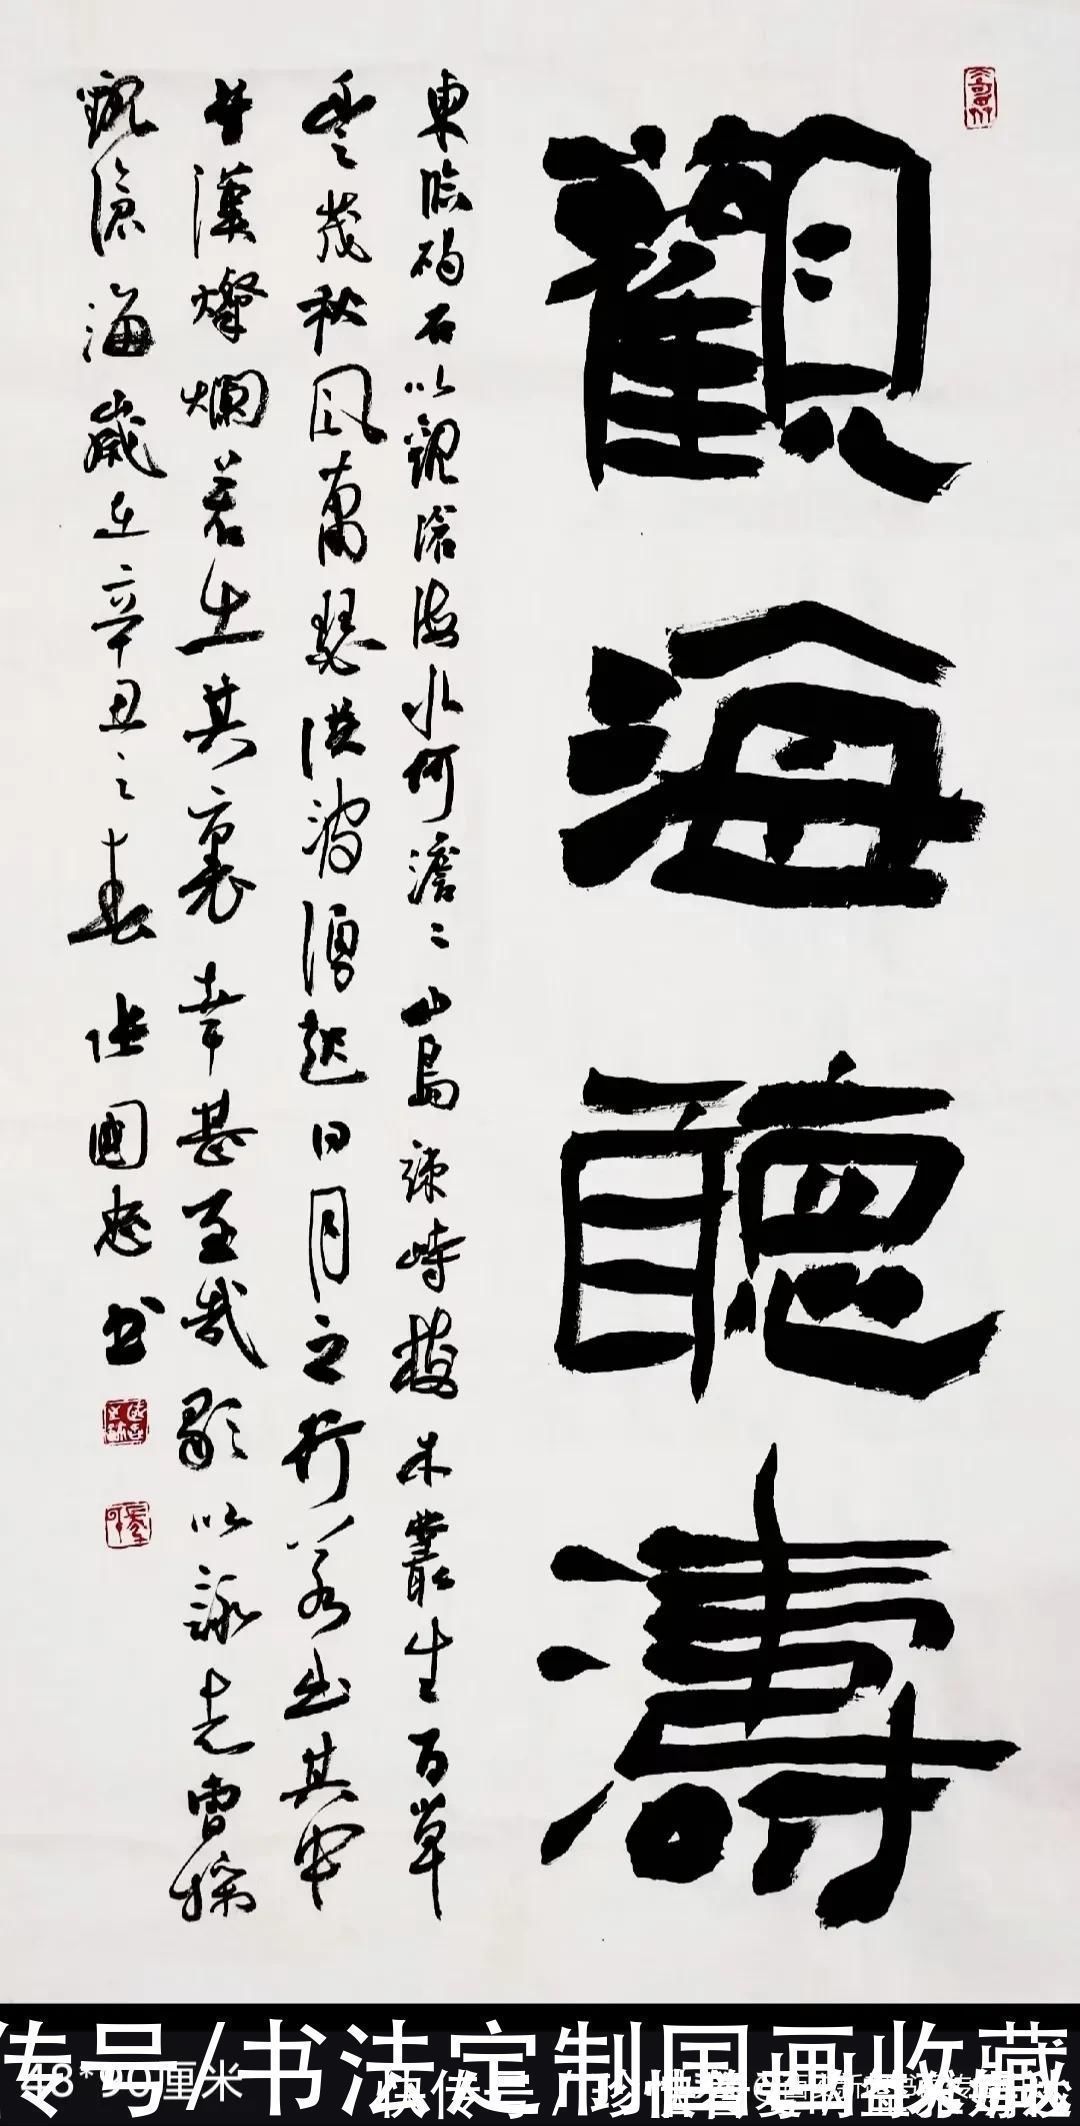 觀海聽濤
東臨碣石以觀滄海水何澹〻山島竦峙樹木叢生百草
豐茂秋風蕭瑟洪波湧起日月之行若出其中
星漢燦爛若出其裏幸甚至哉歌以詠志曹操
觀滄海歲在辛丑之春張國忠書
传号/书法定制国画收藏
48*90厘米